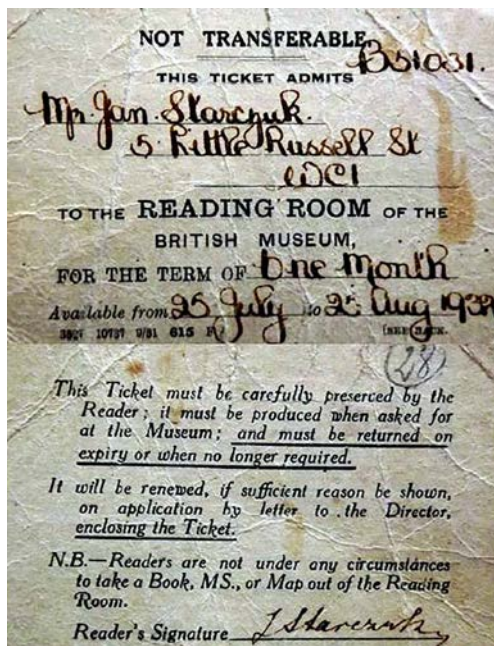 NOT TRANSFERABLE
B51031.
THIS TICKET ADMITS
Mr. Jan Starczuk.
5 Little Russell St
WC1
TO THE READING ROOM OF THE
BRITISH MUSEUM,
FOR THE TERM OF One Month
Available from 25 July to 25 Aug 193
615 (SEE BACK.
28
This Ticket must be carefully preserved by the
Reader; it must be produced when asked for
at the Museum; and must be returned on
expiry or when no longer required.
It will be renewed, if sufficient reason be shown,
on application by letter to the Director,
enclosing the Ticket.
N.B.—Readers are not under any circumstances
to take a Book, MS., or Map out of the Reading
Room.
Reader's Signature J Starczuk